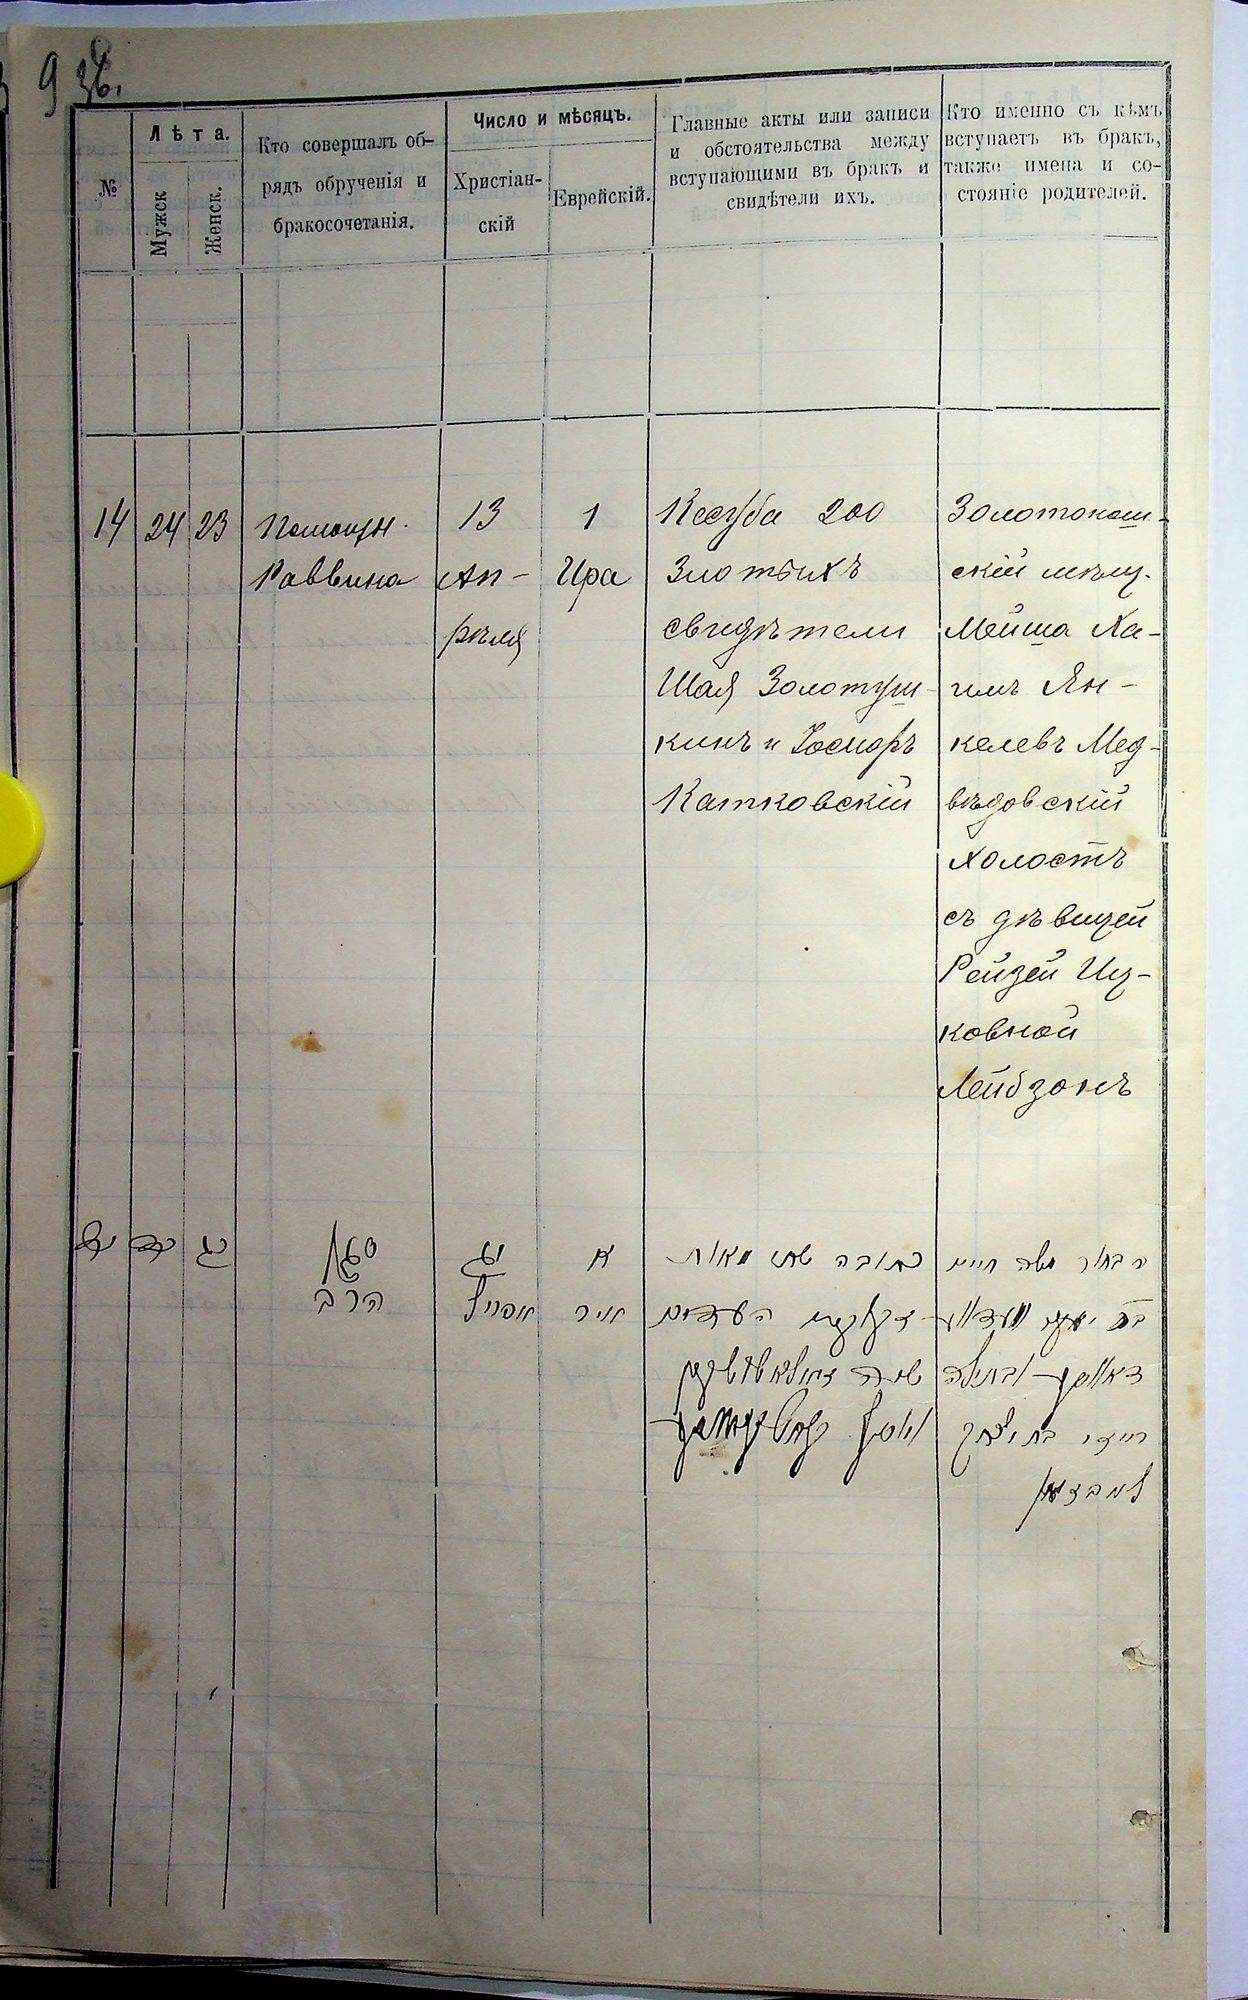 9 об.
№
Лѣта.
Мужск
Женск.
Кто совершалъ об-
рядъ обрученія и
бракосочетанія.
Число и мѣсяцъ.
Христіан-
скій
Еврейскій.
Главные акты или записи
и обстоятельства между
вступающими въ бракъ и
свидѣтели ихъ.
Кто именно съ кѣмъ
вступаетъ въ бракъ,
также имена и со-
стояніе родителей.
14
24
23
Помощн.
Раввина
13
Ап-
рѣля
1
Ира
Кесуба 200
Злотыхъ
свидѣтели
Шая Золотуш-
кинъ и Іосифъ
Катковскій
Золотонош-
скій мѣщ.
Мейша Ха-
имъ Ян-
келевъ Мед-
вѣдовскій
холостъ
съ дѣвицей
Рейзей Иц-
ковной
Лейбзонъ
יד
כד
כג
סגן
הרב
יג
אפריל
א
אייר
כתובה שתי מאות
העדים
שיה
יוסף
הבחור משה חיים
ובתולה
רייזי בת יצחק